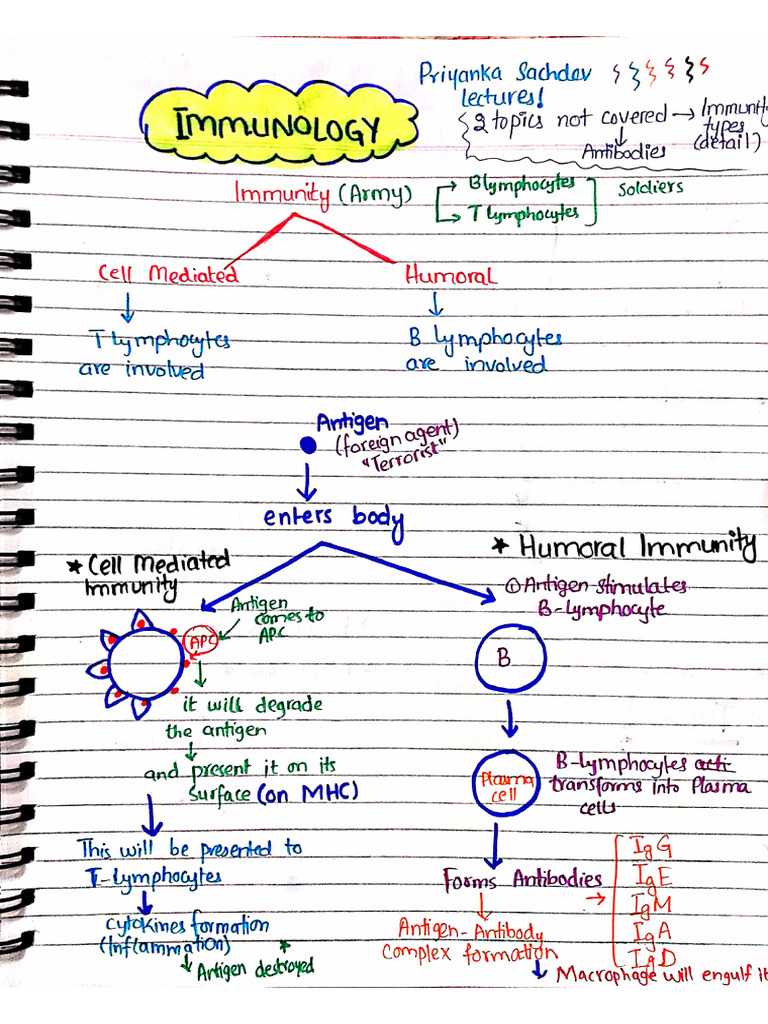 IMMUNOLOGY
Priyanka Sachdev
lectures!
2 topics not covered → Immunity
types
(detail)
↓
Antibodies
Immunity (Army)
→ B lymphocytes
→ T lymphocytes
Soldiers
Cell Mediated
Humoral
↓
↓
T lymphocytes
are involved
B lymphocytes
are involved
Antigen
(foreign agent)
"Terrorist"
↓
enters body
* Cell Mediated
Immunity
Antigen
comes to
APC
APC
↓
it will degrade
the antigen
↓
and present it on its
surface (on MHC)
↓
This will be presented to
T-lymphocytes
↓
Cytokines formation
(Inflammation) *
↓ Antigen destroyed
* Humoral Immunity
① Antigen stimulates
B-lymphocyte
B
↓
Plasma
cell
B-lymphocytes acti
transforms into Plasma
cells
↓
Forms Antibodies
→
IgG
IgE
IgM
IgA
IgD
↓
Antigen-Antibody
complex formation
↓ Macrophage will engulf it